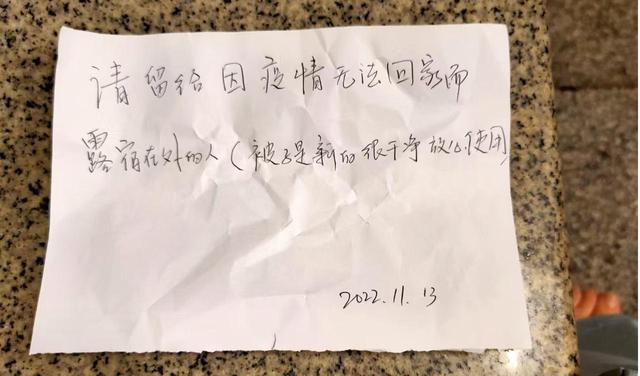 请留给因疫情无法回家而
露宿在外的人(被子是新的很干净放心使用
2022.11.13